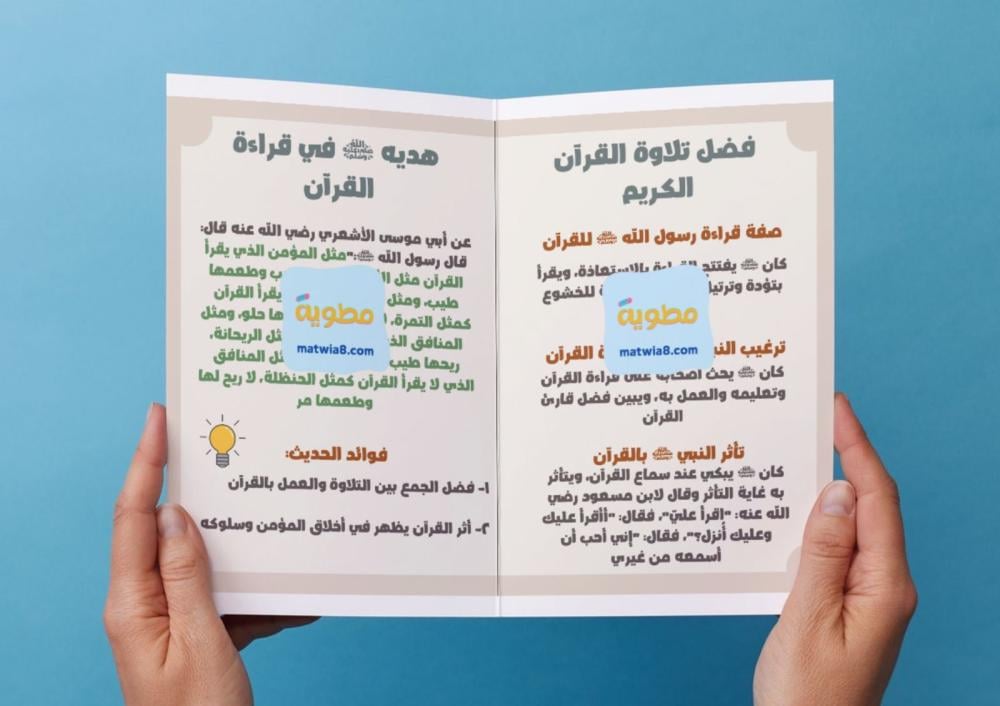 فضل تلاوة القرآن
الكريم
صفة قراءة رسول الله ﷺ للقرآن
كان ﷺ يفتتح القراءة بالاستعاذة، ويقرأ
بتؤدة وترتيل للخشوع
ترغيب القرآن
كان ﷺ يحث أصحابه على قراءة القرآن
وتعليمه والعمل به، ويبين فضل قارئ
القرآن
تأثر النبي ﷺ بالقرآن
كان ﷺ يبكي عند سماع القرآن، ويتأثر
به غاية التأثر وقال لابن مسعود رضي
الله عنه: "اقرأ عليّ"، فقال: "أأقرأ عليك
وعليك أُنزل؟"، فقال: "إني أحب أن
أسمعه من غيري
مطوية
matwia8.com
هديه ﷺ في قراءة
القرآن
عن أبي موسى الأشعري رضي الله عنه قال:
قال رسول الله ﷺ:"مثل المؤمن الذي يقرأ
القرآن مثل وطعمها
طيب، ومثل يقرأ القرآن
كمثل التمرة، حلو، ومثل
المنافق الريحانة،
ريحها طيب المنافق
الذي لا يقرأ القرآن كمثل الحنظلة، لا ريح لها
وطعمها مر
مطوية
matwia8.com
فوائد الحديث:
١- فضل الجمع بين التلاوة والعمل بالقرآن
٢- أثر القرآن يظهر في أخلاق المؤمن وسلوكه